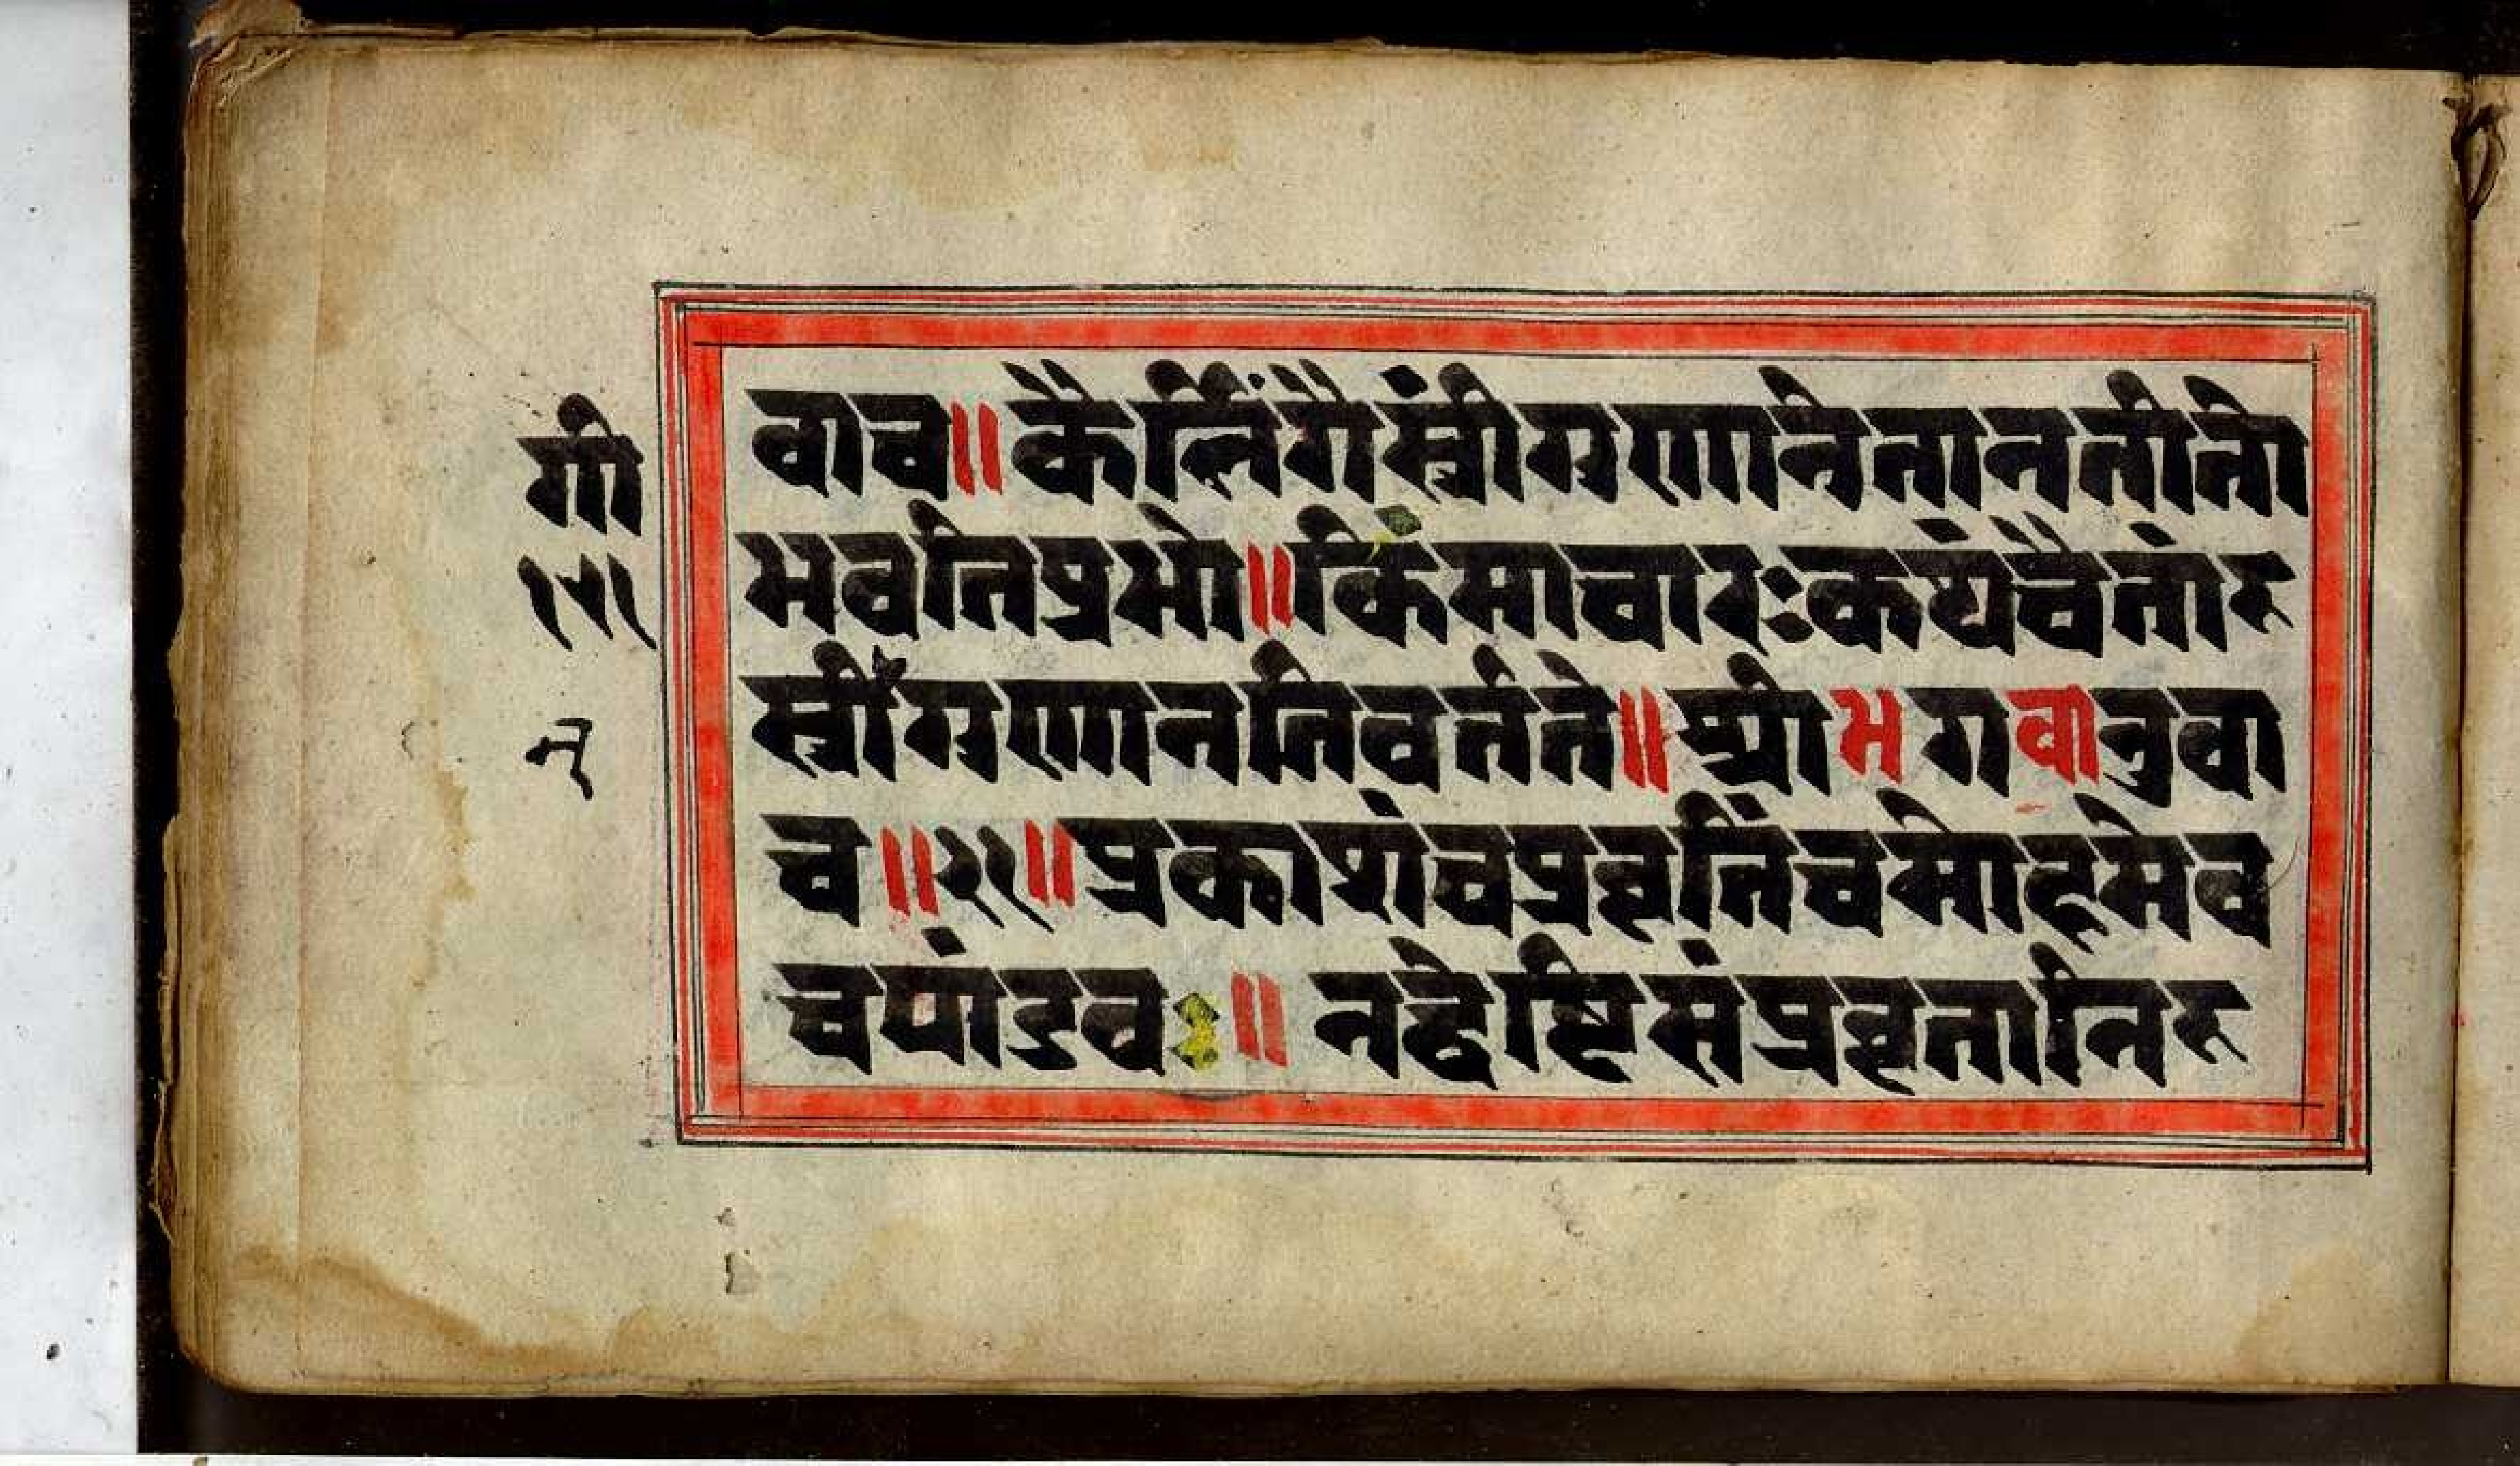 गी
१५१
न्
वाच॥कैर्लिंगैस्त्रींगुणानेतानतीतो
भवतिप्रभो॥किंमाचारःकथंचैतांर
स्त्रींगुणानतिवर्तते॥श्रीभगवानुवा
च॥२१॥प्रकाशंचप्रवृत्तिंचमोहमेव
चपांडव॥नद्वेष्टिसंप्रवृत्तानिरू